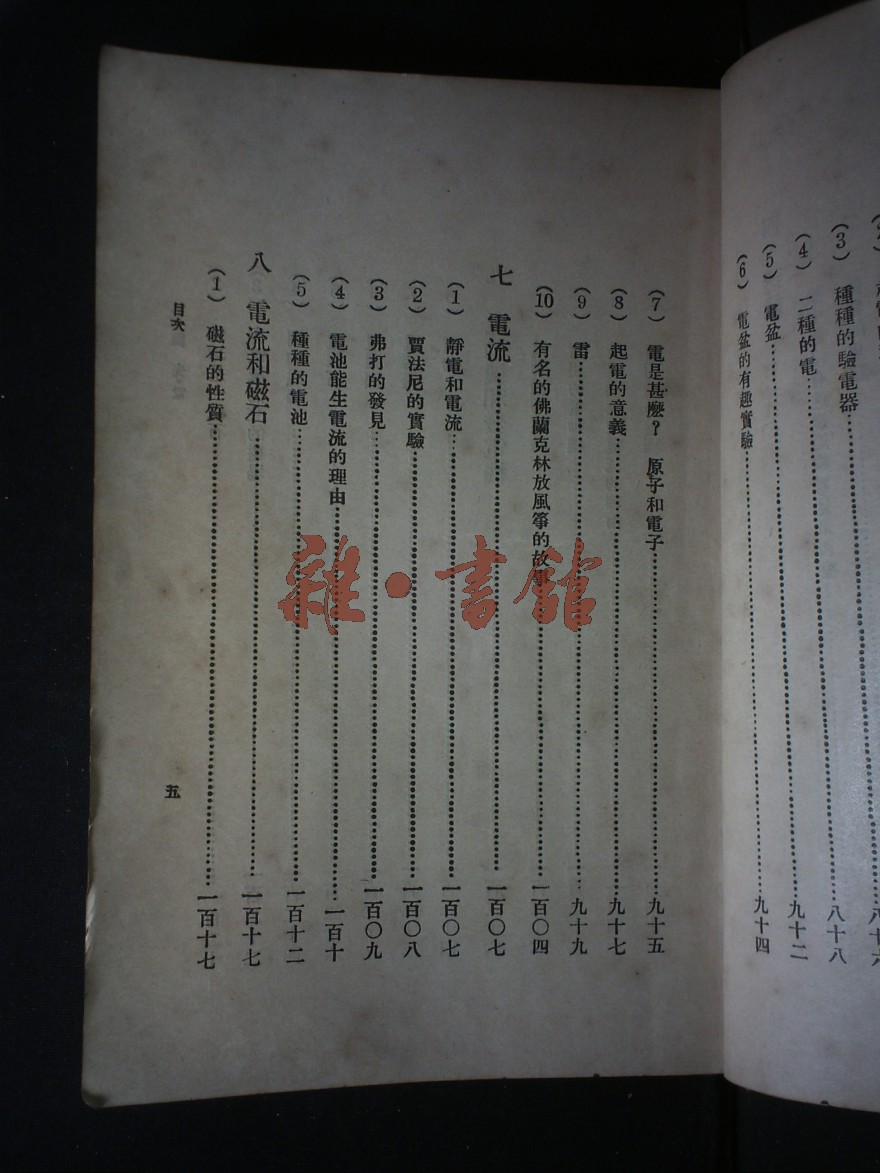 (3) 種種的驗電器……八十八
(4) 二種的電……九十二
(5) 電盆……九十四
(6) 電盆的有趣實驗……九十四
(7) 電是甚麼？ 原子和電子……九十五
(8) 起電的意義……九十七
(9) 雷……九十九
(10) 有名的佛蘭克林放風箏的故事……一百〇四
七 電流……一百〇七
(1) 靜電和電流……一百〇七
(2) 賈法尼的實驗……一百〇八
(3) 弗打的發見……一百〇九
(4) 電池能生電流的理由……一百十
(5) 種種的電池……一百十二
八 電流和磁石……一百十七
(1) 磁石的性質……一百十七
目次
五
雜·書館